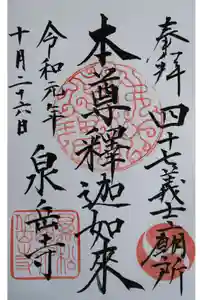 奉拜
四十七義士廟所
本尊釋迦如來
令和元年
十月二十六日
泉岳寺